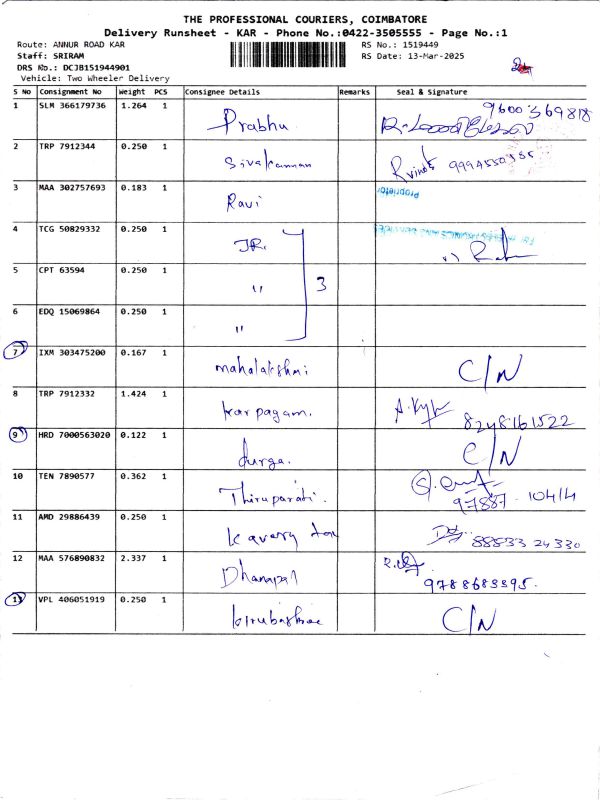 THE PROFESSIONAL COURIERS, COIMBATORE
Delivery Runsheet - KAR - Phone No.:0422-3505555 - Page No.:1
Route: ANNUR ROAD KAR
Staff: SRIRAM
DRS No.: DCJB151944901
Vehicle: Two Wheeler Delivery
RS No.: 1519449
RS Date: 13-Mar-2025
S No Consignment No Weight PCS Consignee Details Remarks Seal & Signature
1 SLM 366179736 1.264 1 Prabhu 9600369818
2 TRP 7912344 0.250 1 Sivakannan
3 MAA 302757693 0.183 1 Ravi Proprietor
4 TCG 50829332 0.250 1 JR.
5 CPT 63594 0.250 1 " 3
6 EDQ 15069864 0.250 1 "
7 IXM 303475200 0.167 1 mahalakshmi C/N
8 TRP 7912332 1.424 1 karpagam. 8248161522
9 HRD 7000563020 0.122 1 durga. C/N
10 TEN 7890577 0.362 1 Thiruparati. 97887-10414
11 AMD 29886439 0.250 1 kavery 88833 24330
12 MAA 576890832 2.337 1 Dhanapal 9788683395.
13 VPL 406051919 0.250 1 C/N